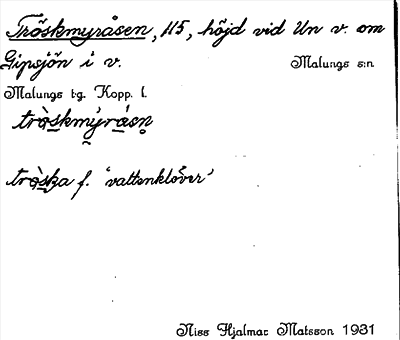 Tröskmyråsen, 115, höjd vid Un v. om
Gipsjön i v. Malungs s:n
Malungs t:g. Kopp. l.
trò̤skmýrǻsn̥
trò̤ska f. 'vattenklöver'
Niss Hjalmar Matsson 1931